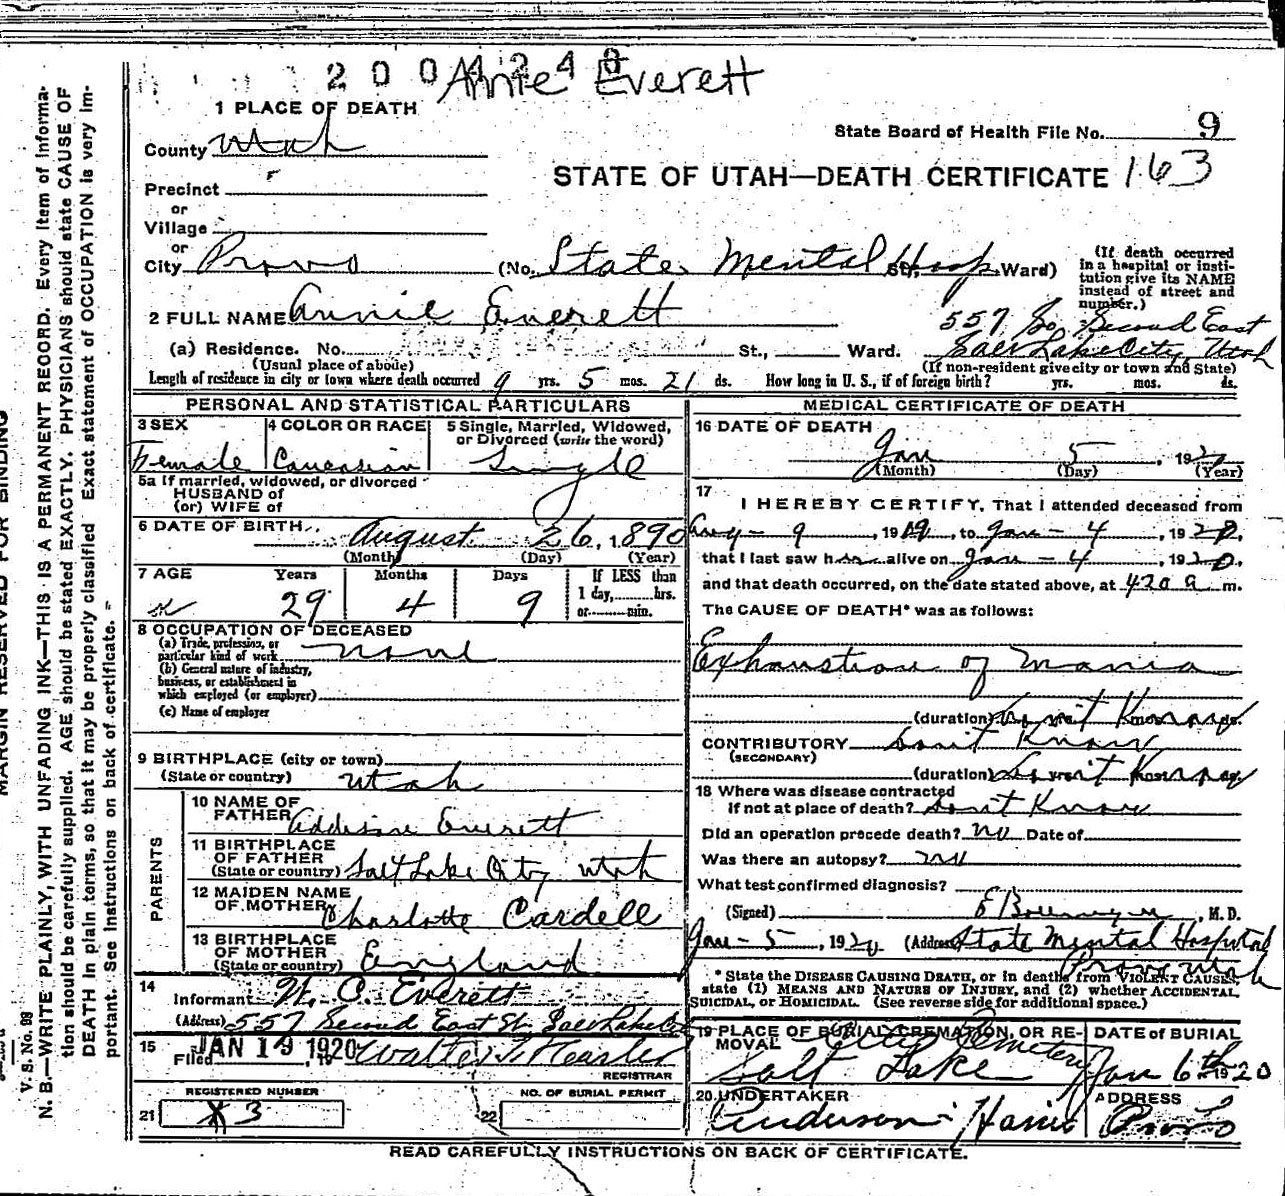 2004243
Annie Everett
1 PLACE OF DEATH
State Board of Health File No. 9
County Utah
STATE OF UTAH—DEATH CERTIFICATE 163
Precinct
or
Village
or
City Provo (No. State Mental Hosp St., Ward)
(If death occurred in a hospital or institution give its NAME instead of street and number.)
2 FULL NAME Annie Everett
557 So. Second East
(a) Residence. No. St., Ward. Salt Lake City, Utah
(Usual place of abode) (If non-resident give city or town and State)
Length of residence in city or town where death occurred 9 yrs. 5 mos. 21 ds. How long in U. S., if of foreign birth? yrs. mos. ds.
PERSONAL AND STATISTICAL PARTICULARS
3 SEX 4 COLOR OR RACE 5 Single, Married, Widowed, or Divorced (write the word)
Female Caucasian Single
5a If married, widowed, or divorced
HUSBAND of
(or) WIFE of
6 DATE OF BIRTH August 26, 1890
(Month) (Day) (Year)
7 AGE Years Months Days If LESS than
1 day, hrs.
29 4 9 or min.
8 OCCUPATION OF DECEASED
(a) Trade, profession, or
particular kind of work none
(b) General nature of industry,
business, or establishment in
which employed (or employer)
(c) Name of employer
9 BIRTHPLACE (city or town)
(State or country) Utah
PARENTS
10 NAME OF
FATHER Addison Everett
11 BIRTHPLACE
OF FATHER
(State or country) Salt Lake City Utah
12 MAIDEN NAME
OF MOTHER Charlotte Cardell
13 BIRTHPLACE
OF MOTHER
(State or country) England
14
Informant W. C. Everett
(Address) 557 Second East St. Salt Lake C
15 Filed JAN 19 1920, 19 Walter T Hasler
REGISTRAR
REGISTERED NUMBER NO. OF BURIAL PERMIT
21 3 22
MEDICAL CERTIFICATE OF DEATH
16 DATE OF DEATH
Jan 5, 1920
(Month) (Day) (Year)
17
I HEREBY CERTIFY, That I attended deceased from
Aug - 9, 1919, to Jan - 4, 1920,
that I last saw her alive on Jan - 4, 1920,
and that death occurred, on the date stated above, at 420 a m.
The CAUSE OF DEATH* was as follows:
Exhaustion of Mania
(duration) Don't Know yrs. mos. ds.
CONTRIBUTORY Don't Know
(SECONDARY)
(duration) Don't Know yrs. mos. ds.
18 Where was disease contracted
if not at place of death? Don't Know
Did an operation precede death? No Date of
Was there an autopsy? No
What test confirmed diagnosis?
(Signed) , M. D.
Jan - 5, 1920 (Address) State Mental Hospital
Provo Utah
* State the DISEASE CAUSING DEATH, or in deaths from VIOLENT CAUSES,
state (1) MEANS AND NATURE OF INJURY, and (2) whether ACCIDENTAL,
SUICIDAL, or HOMICIDAL. (See reverse side for additional space.)
19 PLACE OF BURIAL, CREMATION, OR REMOVAL DATE OF BURIAL
City Cemetery
Salt Lake Jan 6th 1920
20 UNDERTAKER ADDRESS
Anderson - Harris Provo
READ CAREFULLY INSTRUCTIONS ON BACK OF CERTIFICATE.
MARGIN RESERVED FOR BINDING
V. S. No. 98
N. B.—WRITE PLAINLY, WITH UNFADING INK—THIS IS A PERMANENT RECORD. Every item of informa-
tion should be carefully supplied. AGE should be stated EXACTLY. PHYSICIANS should state CAUSE OF
DEATH in plain terms, so that it may be properly classified Exact statement of OCCUPATION is very im-
portant. See instructions on back of certificate.